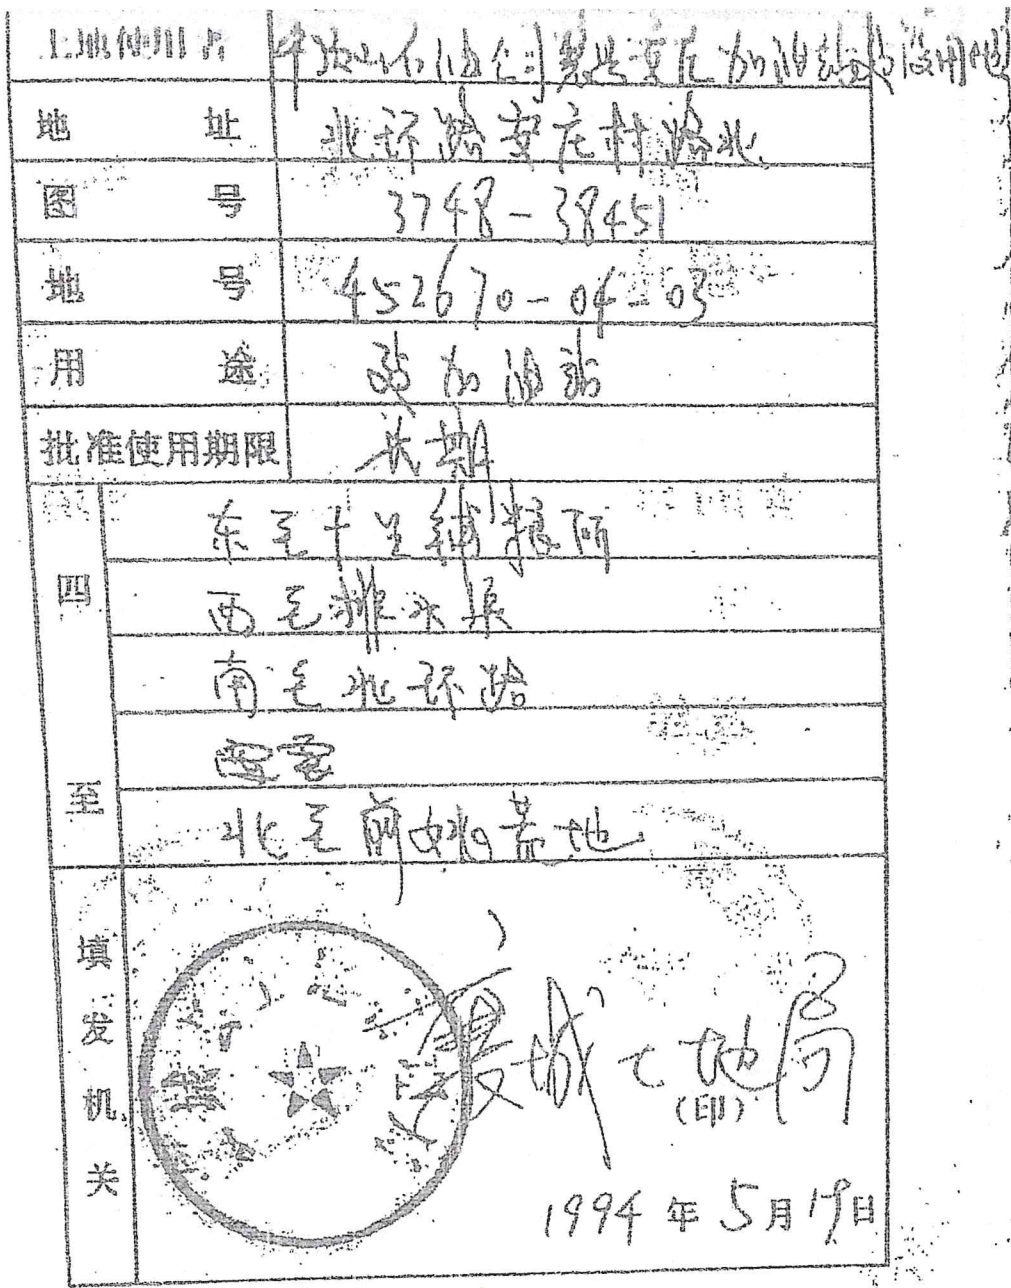 土地使用者
加油站建设用地
地址 北环路安庄村路北
图号 3748-38451
地号 452670-04-03
用途 加油站
批准使用期限 长期
四至
东至十里铺粮所
西至排水渠
南至北环路
北至前姚盖地
填发机关
襄城土地局
(印)
1994年5月19日